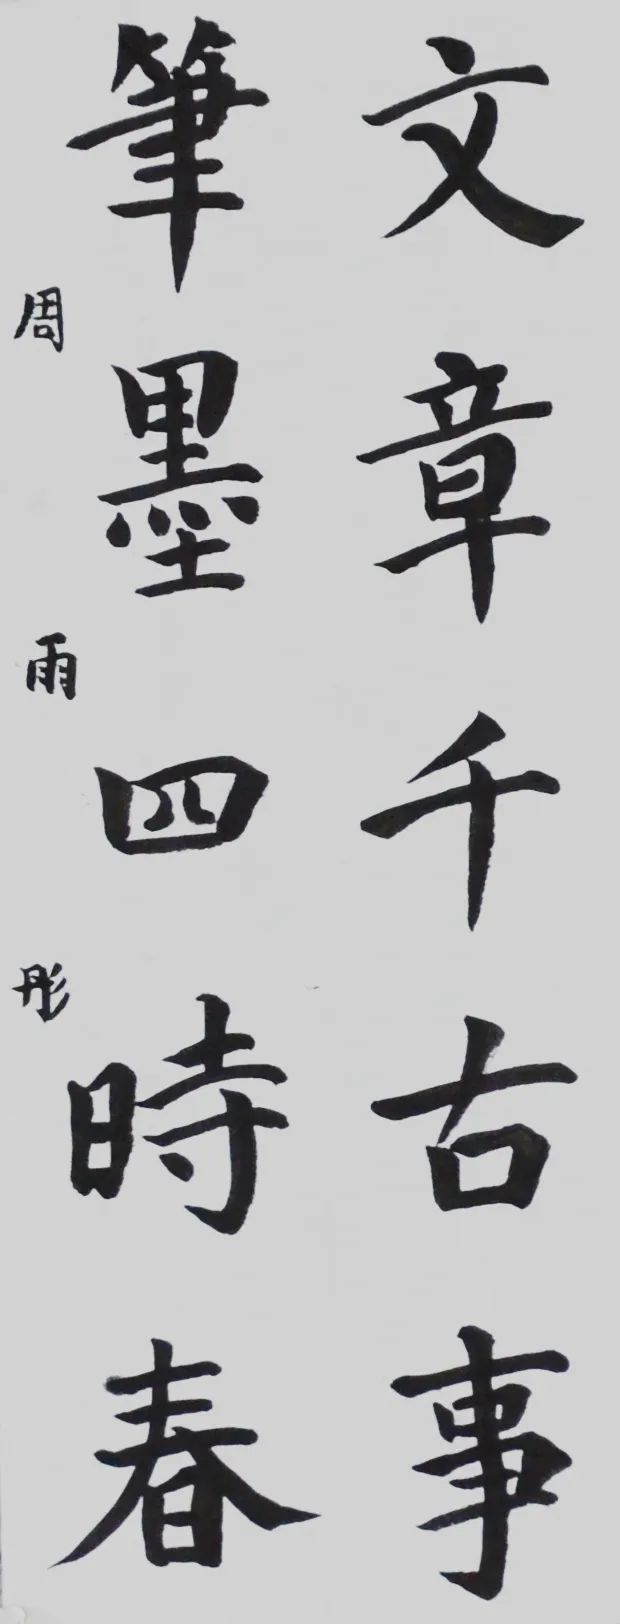 文章千古事
筆墨四時春
周雨彤